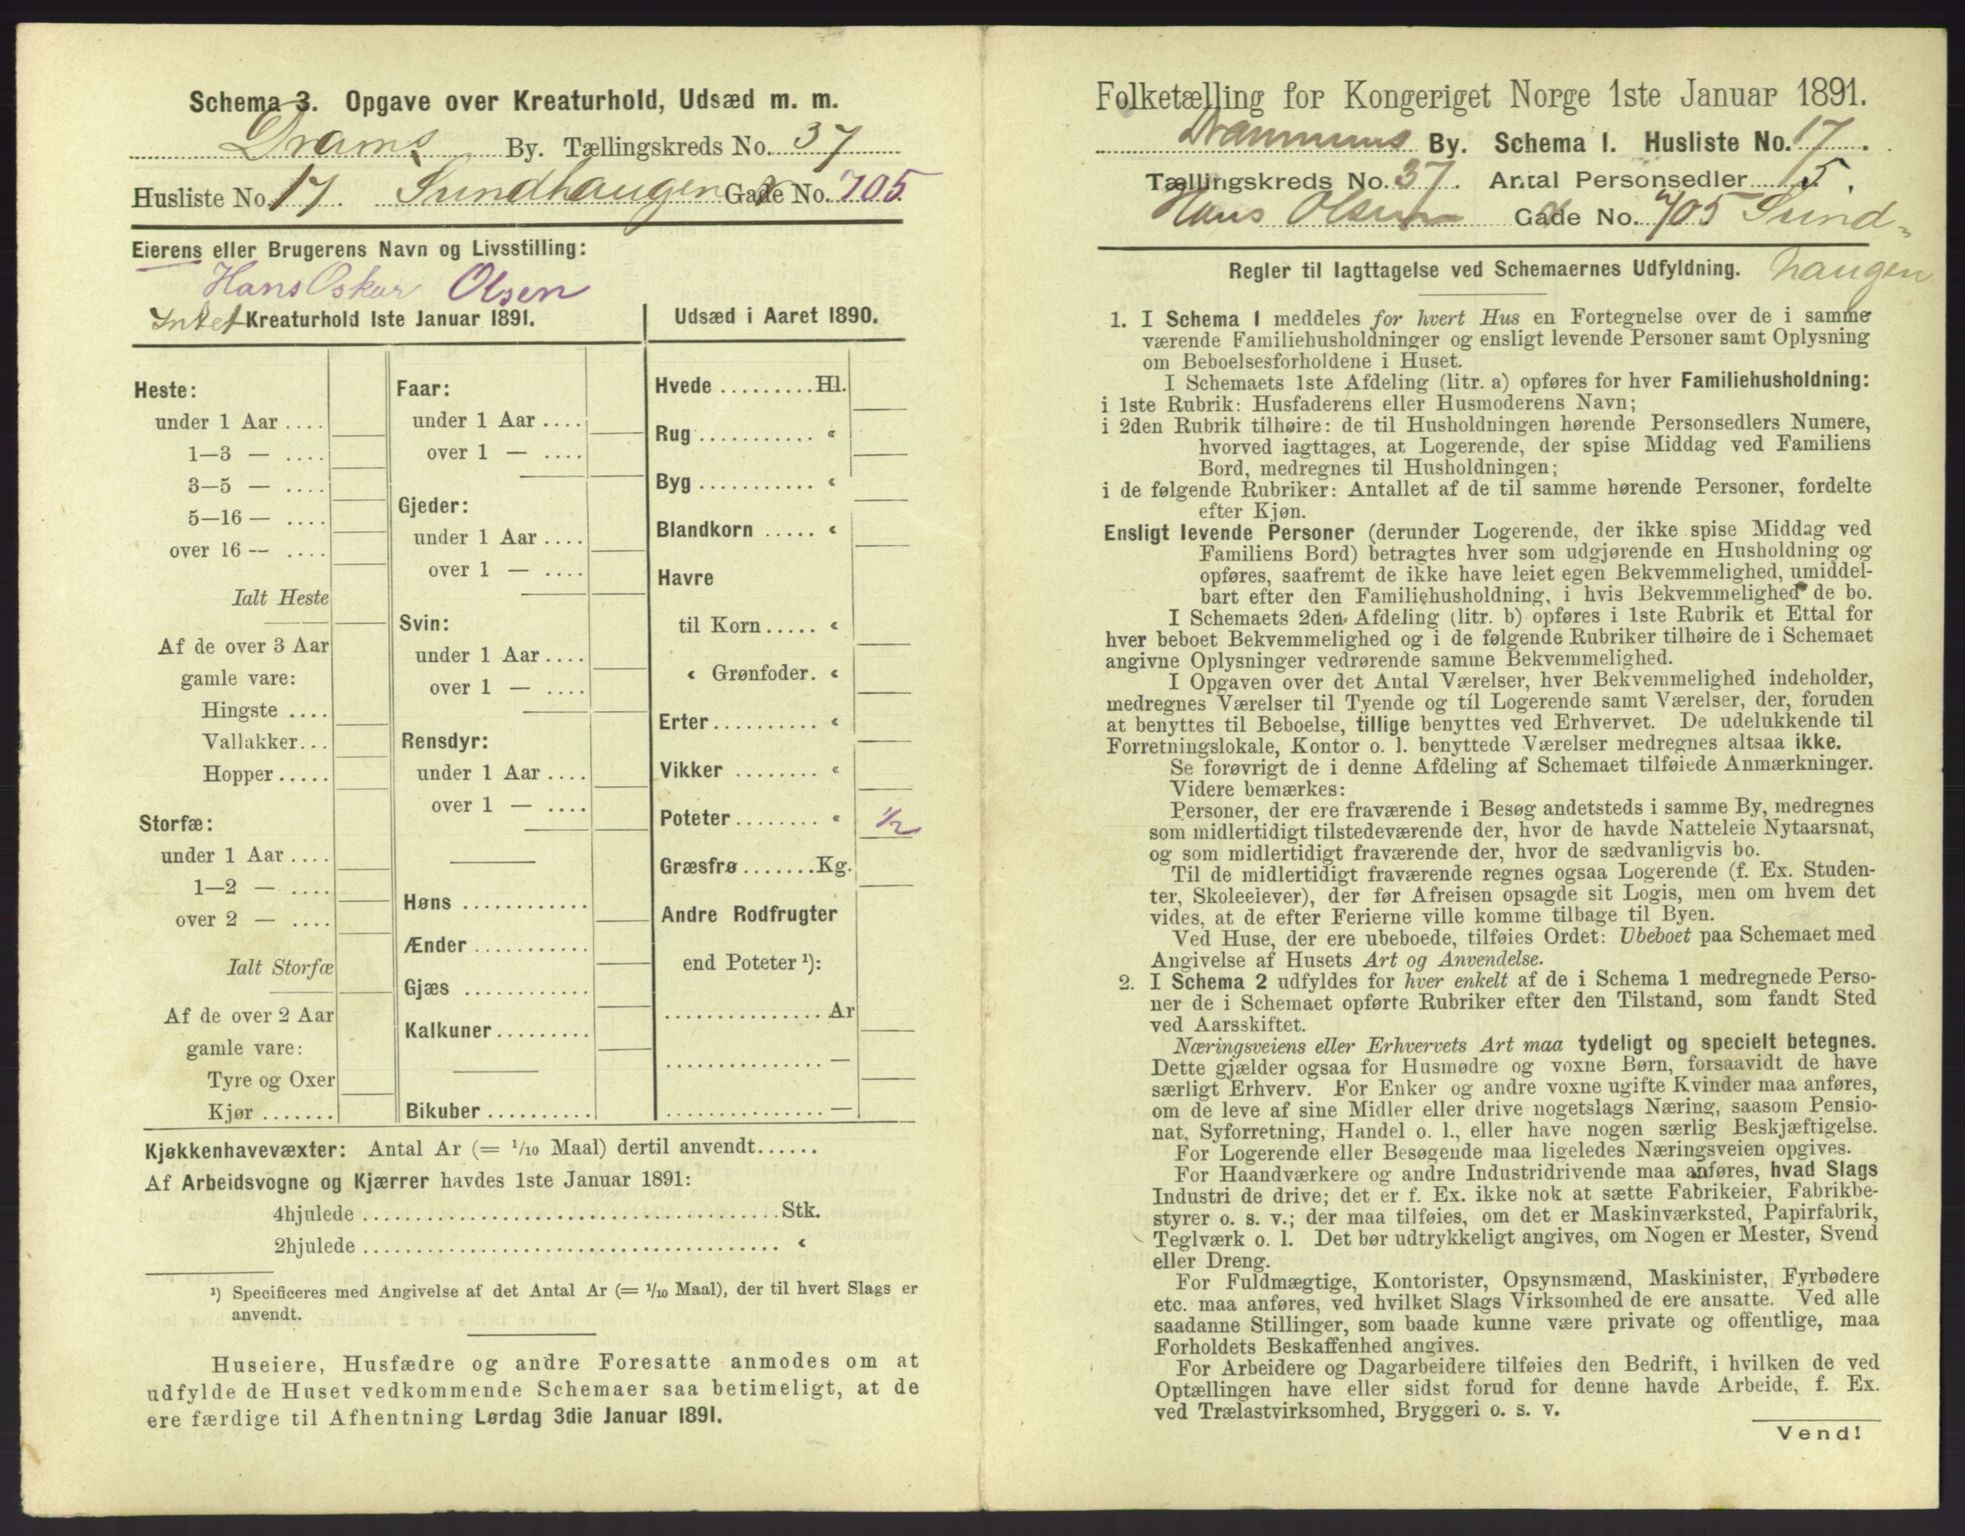 Schema 3. Opgave over Kreaturhold, Udsæd m. m.
Drams By. Tællingskreds No. 37
Husliste No. 17. Sundhaugen Gade No. 705
Eierens eller Brugerens Navn og Livsstilling:
Hans Oskar Olsen
Intet Kreaturhold 1ste Januar 1891.
Heste:
under 1 Aar ....
1—3 — ....
3—5 — ....
5—16 — ....
over 16 — ....
Ialt Heste
Af de over 3 Aar
gamle vare:
Hingste ....
Vallakker...
Hopper.....
Storfæ:
under 1 Aar ....
1—2 — ....
over 2 — ....
Ialt Storfæ
Af de over 2 Aar
gamle vare:
Tyre og Oxer
Kjør .......
Faar:
under 1 Aar ....
over 1 — ....
Gjeder:
under 1 Aar ....
over 1 — ....
Svin:
under 1 Aar ....
over 1 — ....
Rensdyr:
under 1 Aar ....
over 1 — ....
Høns ............
Ænder ...........
Gjæs ............
Kalkuner.........
Bikuber ..........
Udsæd i Aaret 1890.
Hvede .........Hl.
Rug ........... «
Byg ........... «
Blandkorn ..... «
Havre
til Korn..... «
« Grønfoder. «
Erter.......... «
Vikker ........ «
Poteter........ « 1/2
Græsfrø.......Kg.
Andre Rodfrugter
end Poteter ¹):
................Ar
................—
................—
Kjøkkenhavevæxter: Antal Ar (= 1/10 Maal) dertil anvendt......
Af Arbeidsvogne og Kjærrer havdes 1ste Januar 1891:
4hjulede ........................................Stk.
2hjulede ........................................ «
¹) Specificeres med Angivelse af det Antal Ar (= 1/10 Maal), der til hvert Slags er
anvendt.
Huseiere, Husfædre og andre Foresatte anmodes om at
udfylde de Huset vedkommende Schemaer saa betimeligt, at de
ere færdige til Afhentning Lørdag 3die Januar 1891.
Folketælling for Kongeriget Norge 1ste Januar 1891.
Drammens By. Schema 1. Husliste No. 17.
Tællingskreds No. 37. Antal Personsedler 5.
Hans Olsen Gade No. 705 Sund-
haugen
Regler til Iagttagelse ved Schemaernes Udfyldning.
1. I Schema 1 meddeles for hvert Hus en Fortegnelse over de i samme
værende Familiehusholdninger og ensligt levende Personer samt Oplysning
om Beboelsesforholdene i Huset.
I Schemaets 1ste Afdeling (litr. a) opføres for hver Familiehusholdning:
i 1ste Rubrik: Husfaderens eller Husmoderens Navn;
i 2den Rubrik tilhøire: de til Husholdningen hørende Personsedlers Numere,
hvorved iagttages, at Logerende, der spise Middag ved Familiens
Bord, medregnes til Husholdningen;
i de følgende Rubriker: Antallet af de til samme hørende Personer, fordelte
efter Kjøn.
Ensligt levende Personer (derunder Logerende, der ikke spise Middag ved
Familiens Bord) betragtes hver som udgjørende en Husholdning og
opføres, saafremt de ikke have leiet egen Bekvemmelighed, umiddel-
bart efter den Familiehusholdning, i hvis Bekvemmelighed de bo.
I Schemaets 2den Afdeling (litr. b) opføres i 1ste Rubrik et Ettal for
hver beboet Bekvemmelighed og i de følgende Rubriker tilhøire de i Schemaet
angivne Oplysninger vedrørende samme Bekvemmelighed.
I Opgaven over det Antal Værelser, hver Bekvemmelighed indeholder,
medregnes Værelser til Tyende og til Logerende samt Værelser, der, foruden
at benyttes til Beboelse, tillige benyttes ved Erhvervet. De udelukkende til
Forretningslokale, Kontor o. l. benyttede Værelser medregnes altsaa ikke.
Se forøvrigt de i denne Afdeling af Schemaet tilføiede Anmærkninger.
Videre bemærkes:
Personer, der ere fraværende i Besøg andetsteds i samme By, medregnes
som midlertidigt tilstedeværende der, hvor de havde Natteleie Nytaarsnat,
og som midlertidigt fraværende der, hvor de sædvanligvis bo.
Til de midlertidigt fraværende regnes ogsaa Logerende (f. Ex. Studen-
ter, Skoleelever), der før Afreisen opsagde sit Logis, men om hvem det
vides, at de efter Ferierne ville komme tilbage til Byen.
Ved Huse, der ere ubeboede, tilføies Ordet: Ubeboet paa Schemaet med
Angivelse af Husets Art og Anvendelse.
2. I Schema 2 udfyldes for hver enkelt af de i Schema 1 medregnede Perso-
ner de i Schemaet opførte Rubriker efter den Tilstand, som fandt Sted
ved Aarsskiftet.
Næringsveiens eller Erhvervets Art maa tydeligt og specielt betegnes.
Dette gjælder ogsaa for Husmødre og voxne Børn, forsaavidt de have
særligt Erhverv. For Enker og andre voxne ugifte Kvinder maa anføres,
om de leve af sine Midler eller drive nogetslags Næring, saasom Pensio-
nat, Syforretning, Handel o. l., eller have nogen særlig Beskjæftigelse.
For Logerende eller Besøgende maa ligeledes Næringsveien opgives.
For Haandværkere og andre Industridrivende maa anføres, hvad Slags
Industri de drive; det er f. Ex. ikke nok at sætte Fabrikeier, Fabrikbe-
styrer o. s. v.; der maa tilføies, om det er Maskinværksted, Papirfabrik,
Teglværk o. l. Det bør udtrykkeligt angives, om Nogen er Mester, Svend
eller Dreng.
For Fuldmægtige, Kontorister, Opsynsmænd, Maskinister, Fyrbødere
etc. maa anføres, ved hvilket Slags Virksomhed de ere ansatte. Ved alle
saadanne Stillinger, som baade kunne være private og offentlige, maa
Forholdets Beskaffenhed angives.
For Arbeidere og Dagarbeidere tilføies den Bedrift, i hvilken de ved
Optællingen have eller sidst forud for denne havde Arbeide, f. Ex.
ved Trælastvirksomhed, Bryggeri o. s. v.
Vend!